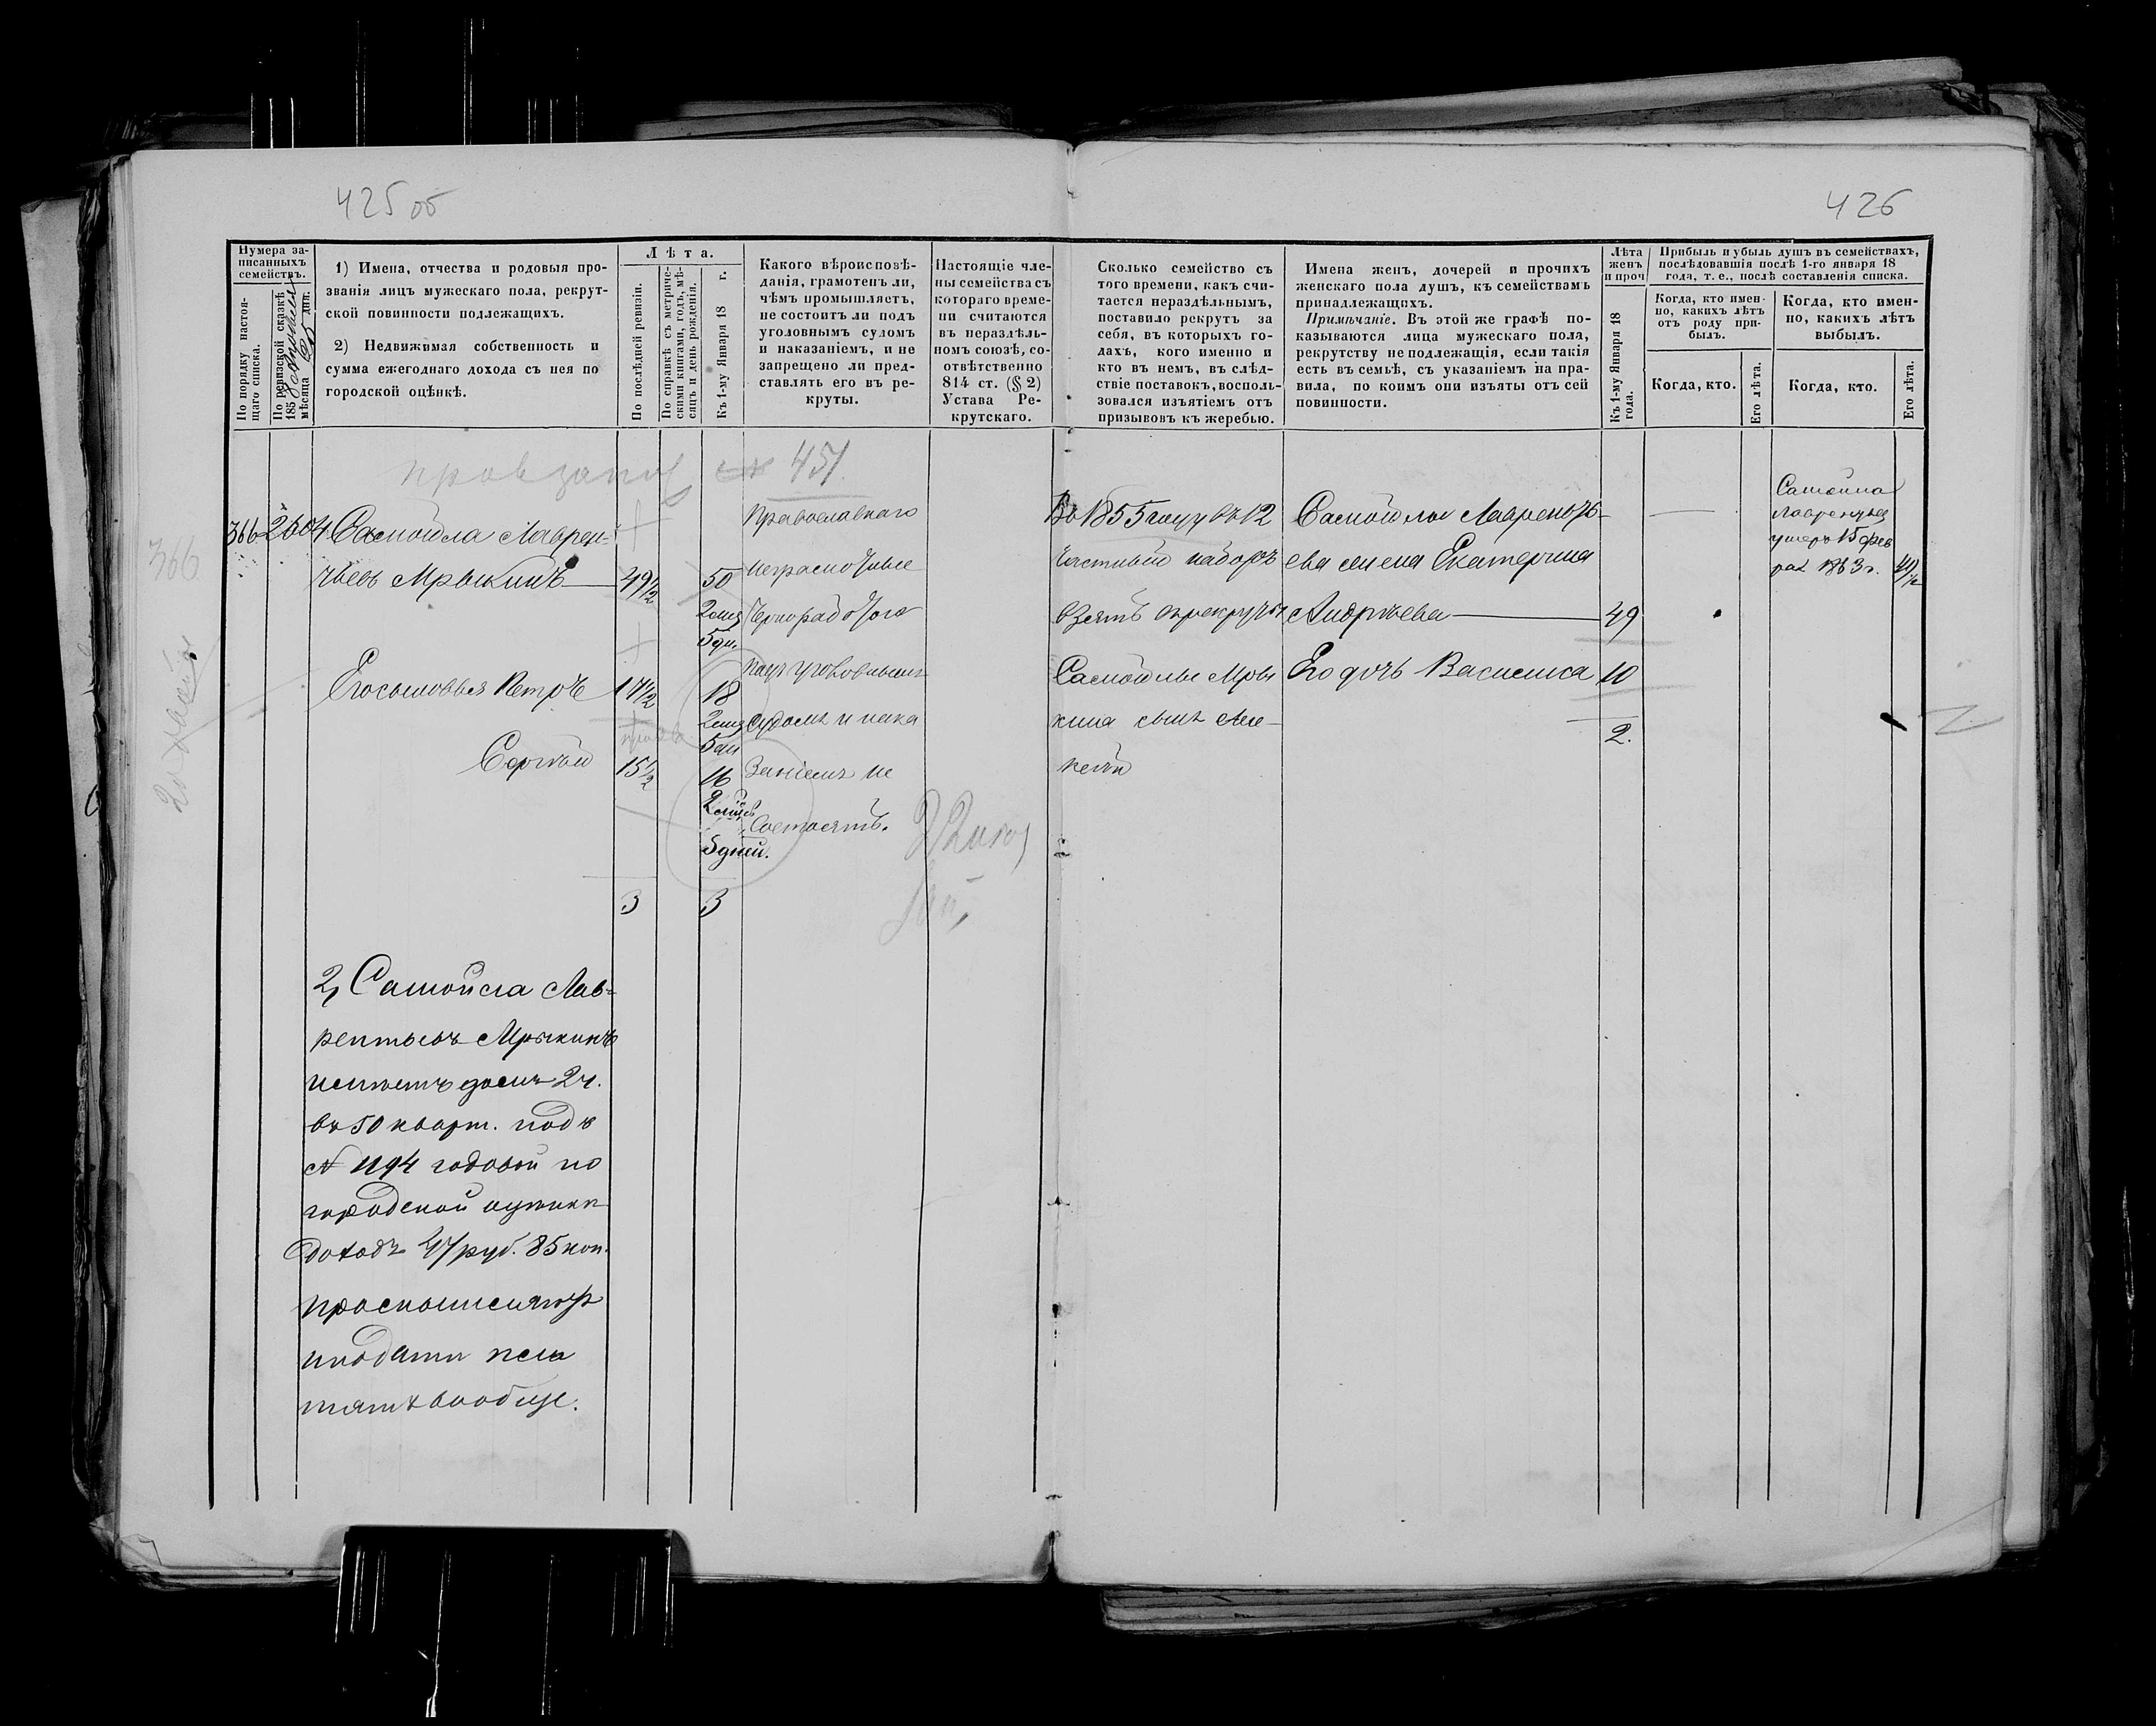 425 об
426
Нумера за-
писанныхъ
семействъ.
По порядку настоя-
щаго списка.
По ревизской сказкѣ
185
мѣсяца дня.
1) Имена, отчества и родовыя про-
званія лицъ мужескаго пола, рекрут-
ской повинности подлежащихъ.
2) Недвижимая собственность и
сумма ежегоднаго дохода съ нея по
городской оцѣнкѣ.
Лѣта.
По послѣдней ревизіи.
По справкѣ съ метриче-
скими книгами, годъ, мѣ-
сяцъ и день рожденія.
Къ 1-му Января 18 г.
Какого вѣроисповѣ-
данія, грамотенъ ли,
чѣмъ промышляетъ,
не состоитъ ли подъ
уголовнымъ судомъ
и наказаніемъ, и не
запрещено ли пред-
ставлять его въ ре-
круты.
Настоящіе чле-
ны семейства съ
котораго време-
ни считаются
въ нераздѣль-
номъ союзѣ, со-
отвѣтственно
814 ст. (§ 2)
Устава Ре-
крутскаго.
Сколько семейство съ
того времени, какъ счи-
тается нераздѣльнымъ,
поставило рекрутъ за
себя, въ которыхъ го-
дахъ, кого именно и
кто въ немъ, въ слѣд-
ствіе поставокъ, восполь-
зовался изъятіемъ отъ
призывовъ къ жеребью.
Имена женъ, дочерей и прочихъ
женскаго пола душъ, къ семействамъ
принадлежащихъ.
Примѣчаніе. Въ этой же графѣ по-
казываются лица мужескаго пола,
рекрутству неподлежащія, если такія
есть въ семьѣ, съ указаніемъ на пра-
вила, по коимъ они изъяты отъ сей
повинности.
Лѣта
женъ
и проч
Къ 1-му Января 18
года.
Прибыль и убыль душъ въ семействахъ,
послѣдовавшія послѣ 1-го января 18
года, т. е., послѣ составленія списка.
Когда, кто имен-
но, какихъ лѣтъ
отъ роду при-
былъ.
Когда, кто.
Его лѣта.
Когда, кто имен-
но, какихъ лѣтъ
выбылъ.
Когда, кто.
Его лѣта.
451
366
366 2604 Самойла Лаврен-
тьевъ Мрыкинъ 49½
Его сыновья Петръ 17½
Сергѣй 15½
3
50
2 мѣс
5 дн.
18
2 мѣс
5 дн
16
2 мѣс
5 дней.
3
Православнаго
неграмотные
Чернорабочіе
подъ уголовнымъ
судомъ и нака
заніемъ не
Состоятъ.
Въ 1855 году въ 12
частный наборъ
взятъ в рекруты
Самойлы Мры
кина сынъ Але-
ксѣй
Самойлы Лавренть-
ева жена Екатерина
Андреева 49
Его дочь Василиса 10
2.
Самойла
Лаврентьев
умеръ 15 фев
рал 1863 г.
2, Самойла Лав-
рентьевъ Мрыкинъ
имѣетъ домъ 2 ч.
въ 50 кварт. подъ
№ 1194 годовой по
городской оценки
доходъ 47 руб. 85 коп.
подати пла
тятъ вообще.